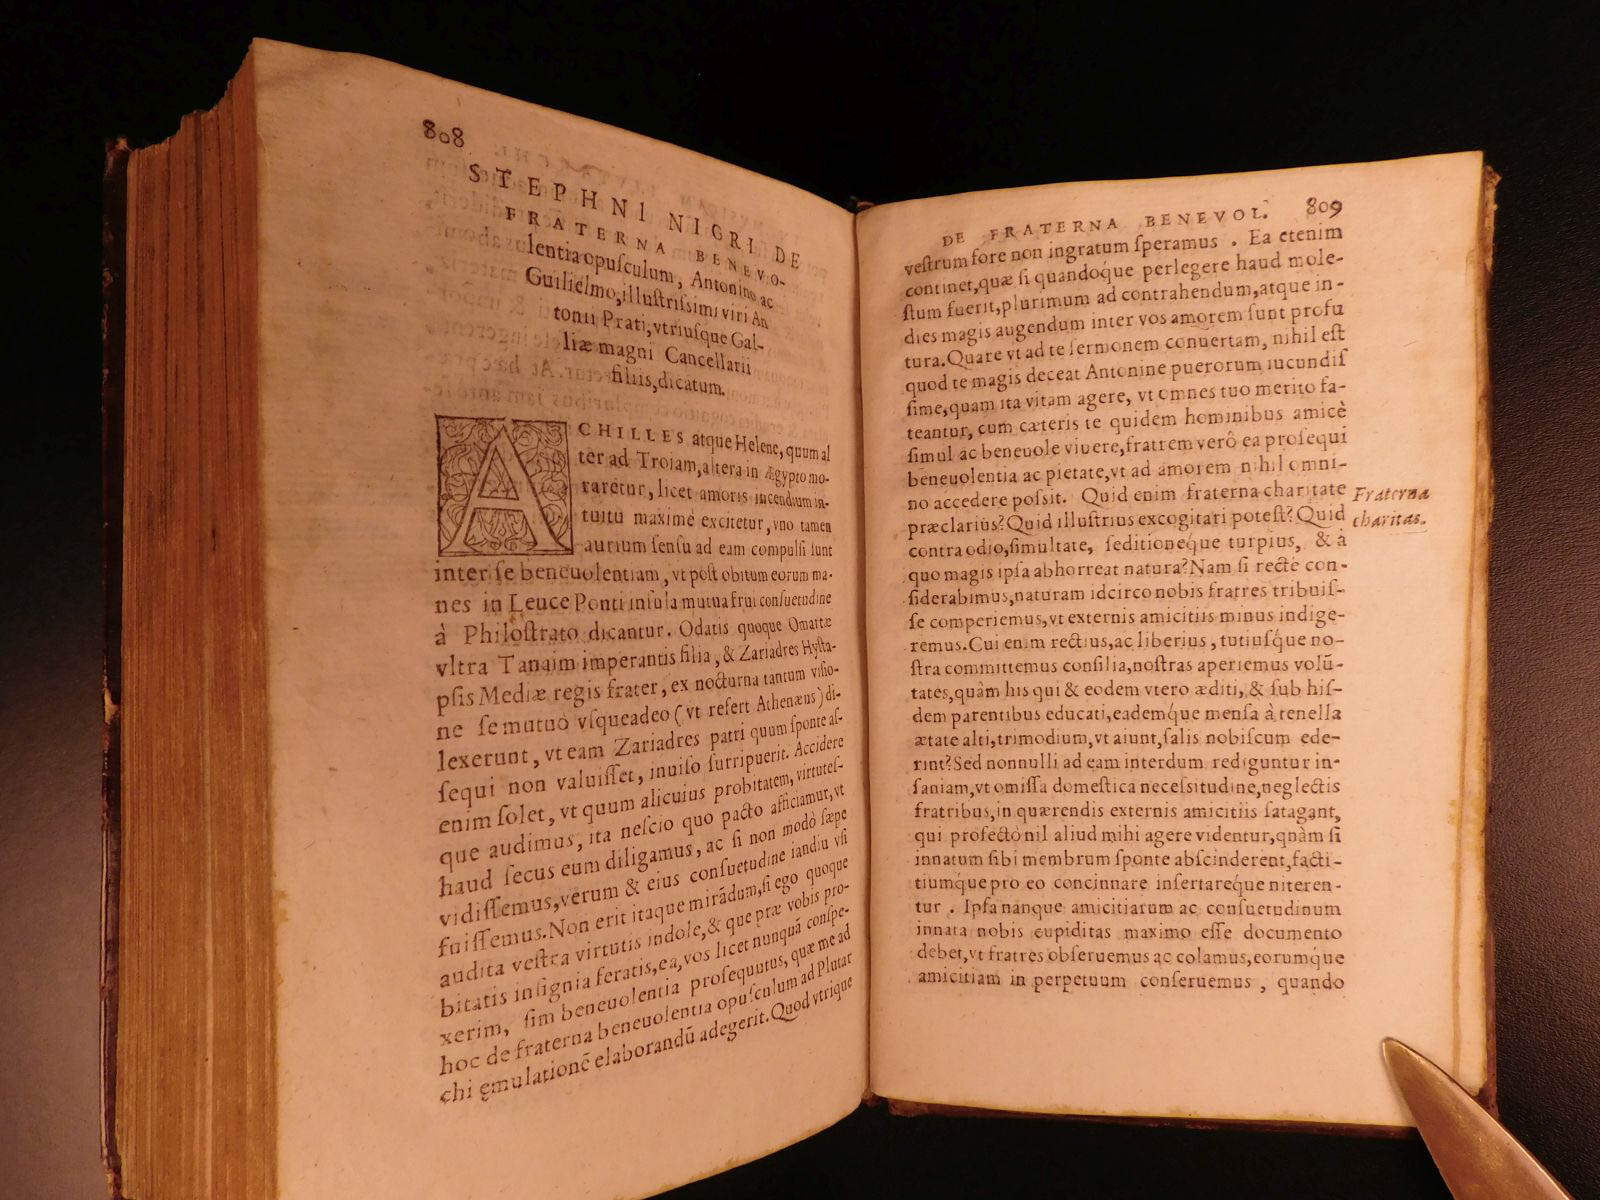 808
STEPHNI NIGRI DE
FRATERNA BENEVO-
lentia opuſculum, Antonino ac
Guilielmo, illuſtriſsimi viri An
tonii Prati, vtriuſque Gal-
liæ magni Cancellarii
filiis, dicatum.
ACHILLES atque Helene, quum al
ter ad Troiam, altera in Ægypto mo-
raretur, licet amoris incendium in-
tuitu maximè excitetur, vno tamen
aurium ſenſu ad eam compulſi ſunt
inter ſe beneuolentiam, vt poſt obitum eorum ma-
nes in Leuce Ponti inſula mutua frui conſuetudine
à Philoſtrato dicantur. Odatis quoque Omartæ
vltra Tanaim imperantis filia, & Zariadres Hyſta-
pſis Mediæ regis frater, ex nocturna tantum viſio-
ne ſe mutuò vſqueadeo (vt refert Athenæus) di-
lexerunt, vt eam Zariadres patri quum ſponte aſ-
ſequi non valuiſſet, inuiſo ſurripuerit. Accidere
enim ſolet, vt quum alicuius probitatem, virtuteſ-
que audimus, ita neſcio quo pacto afficiamur, vt
haud ſecus eum diligamus, ac ſi non modò ſæpe
vidiſſemus, verum & eius conſuetudine iandiu vſi
fuiſſemus. Non erit itaque mirãdum, ſi ego quoque
audita veſtra virtutis indole, & que præ vobis pro-
bitatis inſignia feratis, ea, vos licet nunquã conſpe-
xerim, ſim beneuolentia proſequutus, quæ me ad
hoc de fraterna beneuolentia opuſculum ad Plutar
chi ęmulationē elaborandũ adegerit. Quod vtrique
DE FRATERNA BENEVOL. 809
veſtrum fore non ingratum ſperamus. Ea etenim
continet, quæ ſi quandoque perlegere haud mole-
ſtum fuerit, plurimum ad contrahendum, atque in-
dies magis augendum inter vos amorem ſunt profu
tura. Quare vt ad te ſermonem conuertam, nihil eſt
quod te magis deceat Antonine puerorum iucundiſ
ſime, quam ita vitam agere, vt omnes tuo merito fa-
teantur, cum cæteris te quidem hominibus amicè
ſimul ac beneuole viuere, fratrem verò ea proſequi
beneuolentia ac pietate, vt ad amorem nihil omni-
no accedere poſsit. Quid enim fraterna charitate
præclarius? Quid illuſtrius excogitari poteſt? Quid
contra odio, ſimultate, ſeditioneque turpius, & à
quo magis ipſa abhorreat natura? Nam ſi rectè con-
ſiderabimus, naturam idcirco nobis fratres tribuiſ-
ſe comperiemus, vt externis amicitiis minus indige-
remus. Cui enim rectius, ac liberius, tutiuſque no-
ſtra committemus conſilia, noſtras aperiemus volũ-
tates, quàm his qui & eodem vtero æditi, & ſub hiſ-
dem parentibus educati, eademque menſa à tenella
ætate alti, trimodium, vt aiunt, ſalis nobiſcum ede-
rint? Sed nonnulli ad eam interdum rediguntur in-
ſaniam, vt omiſſa domeſtica neceſsitudine, neglectis
fratribus, in quærendis externis amicitiis ſatagant,
qui profectò nil aliud mihi agere videntur, quàm ſi
innatum ſibi membrum ſponte abſcinderent, facti-
tiumque pro eo concinnare inſertareque niteren-
tur. Ipſa nanque amicitiarum ac conſuetudinum
innata nobis cupiditas maximo eſſe documento
debet, vt fratres obſeruemus ac colamus, eorumque
amicitiam in perpetuum conſeruemus, quando
Fraterna
charitas.